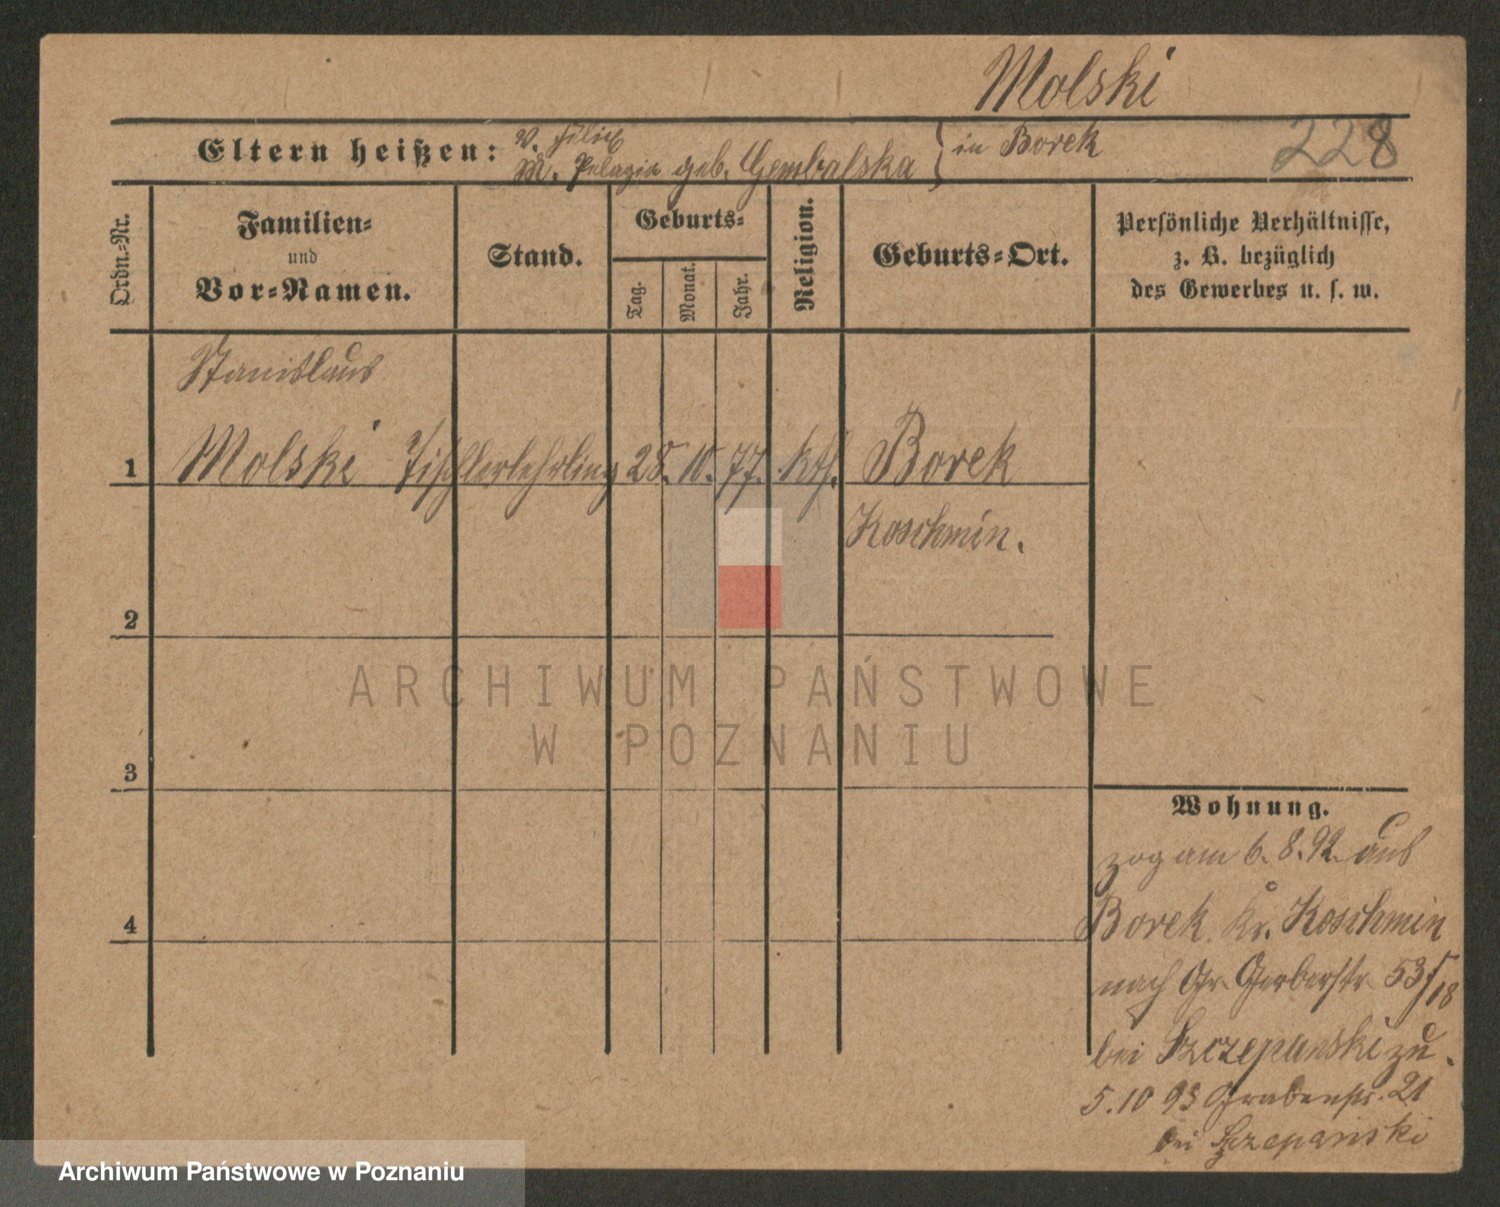 Molski
Eltern heißen: V. Felix
M. Pelagia geb. Gembalska } in Borek
228
Ordn.-Nr.
Familien-
und
Vor-Namen.
Stand.
Geburts-
Tag.
Monat.
Jahr.
Religion.
Geburts-Ort.
Persönliche Verhältnisse,
z. B. bezüglich
des Gewerbes u. s. w.
Stanislaus
1 Molski Tischlerlehrling 28. 10. 77. kth. Borek
Koschmin.
2
ARCHIWUM PAŃSTWOWE
W POZNANIU
3
Wohnung.
zog am 6. 8. 92. aus
4 Borek Kr. Koschmin
nach Gr. Gerberstr. 53/18
bei Szczepanski zu.
5. 10 93 Grabenstr. 21
bei Szczepanski
Archiwum Państwowe w Poznaniu